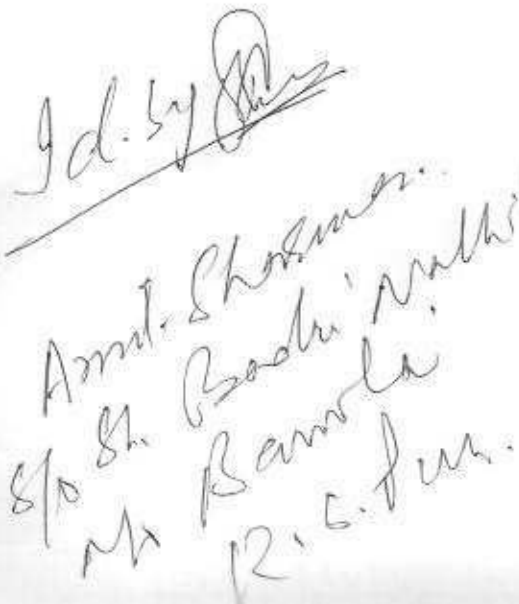 Id. by
Amit Sharma.
S/o Sh. Badri Nath
R/o Barnola
R. S. Pura.